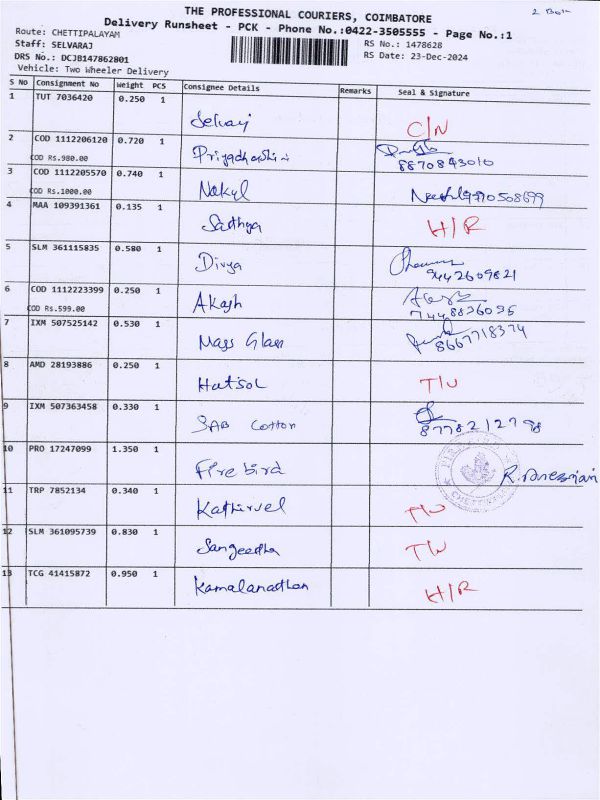 2 Bok
THE PROFESSIONAL COURIERS, COIMBATORE
Delivery Runsheet - PCK - Phone No.:0422-3505555 - Page No.:1
Route: CHETTIPALAYAM
Staff: SELVARAJ
RS No.: 1478628
DRS No.: DCJB147862801
RS Date: 23-Dec-2024
Vehicle: Two Wheeler Delivery
S No Consignment No Weight PCS Consignee Details Remarks Seal & Signature
1 TUT 7036420 0.250 1 Selvaj C/N
2 COD 1112206120 0.720 1 Priyadharshini
COD Rs.980.00 8870843010
3 COD 1112205570 0.740 1 Nakul
COD Rs.1000.00
4 MAA 109391361 0.135 1 Sathya H/R
5 SLM 361115835 0.580 1 Divya
9442609821
6 COD 1112223399 0.250 1 Akash
COD Rs.599.00
7 IXM 507525142 0.530 1 Mass Glass 8667718374
8 AMD 28193886 0.250 1 Hatsol T/U
9 IXM 507363458 0.330 1 SAB Cotton 8778212798
10 PRO 17247099 1.350 1 Fire bird
11 TRP 7852134 0.340 1 Kathirvel T/U
12 SLM 361095739 0.830 1 Sangeetha T/U
13 TCG 41415872 0.950 1 Kamalanathan H/R